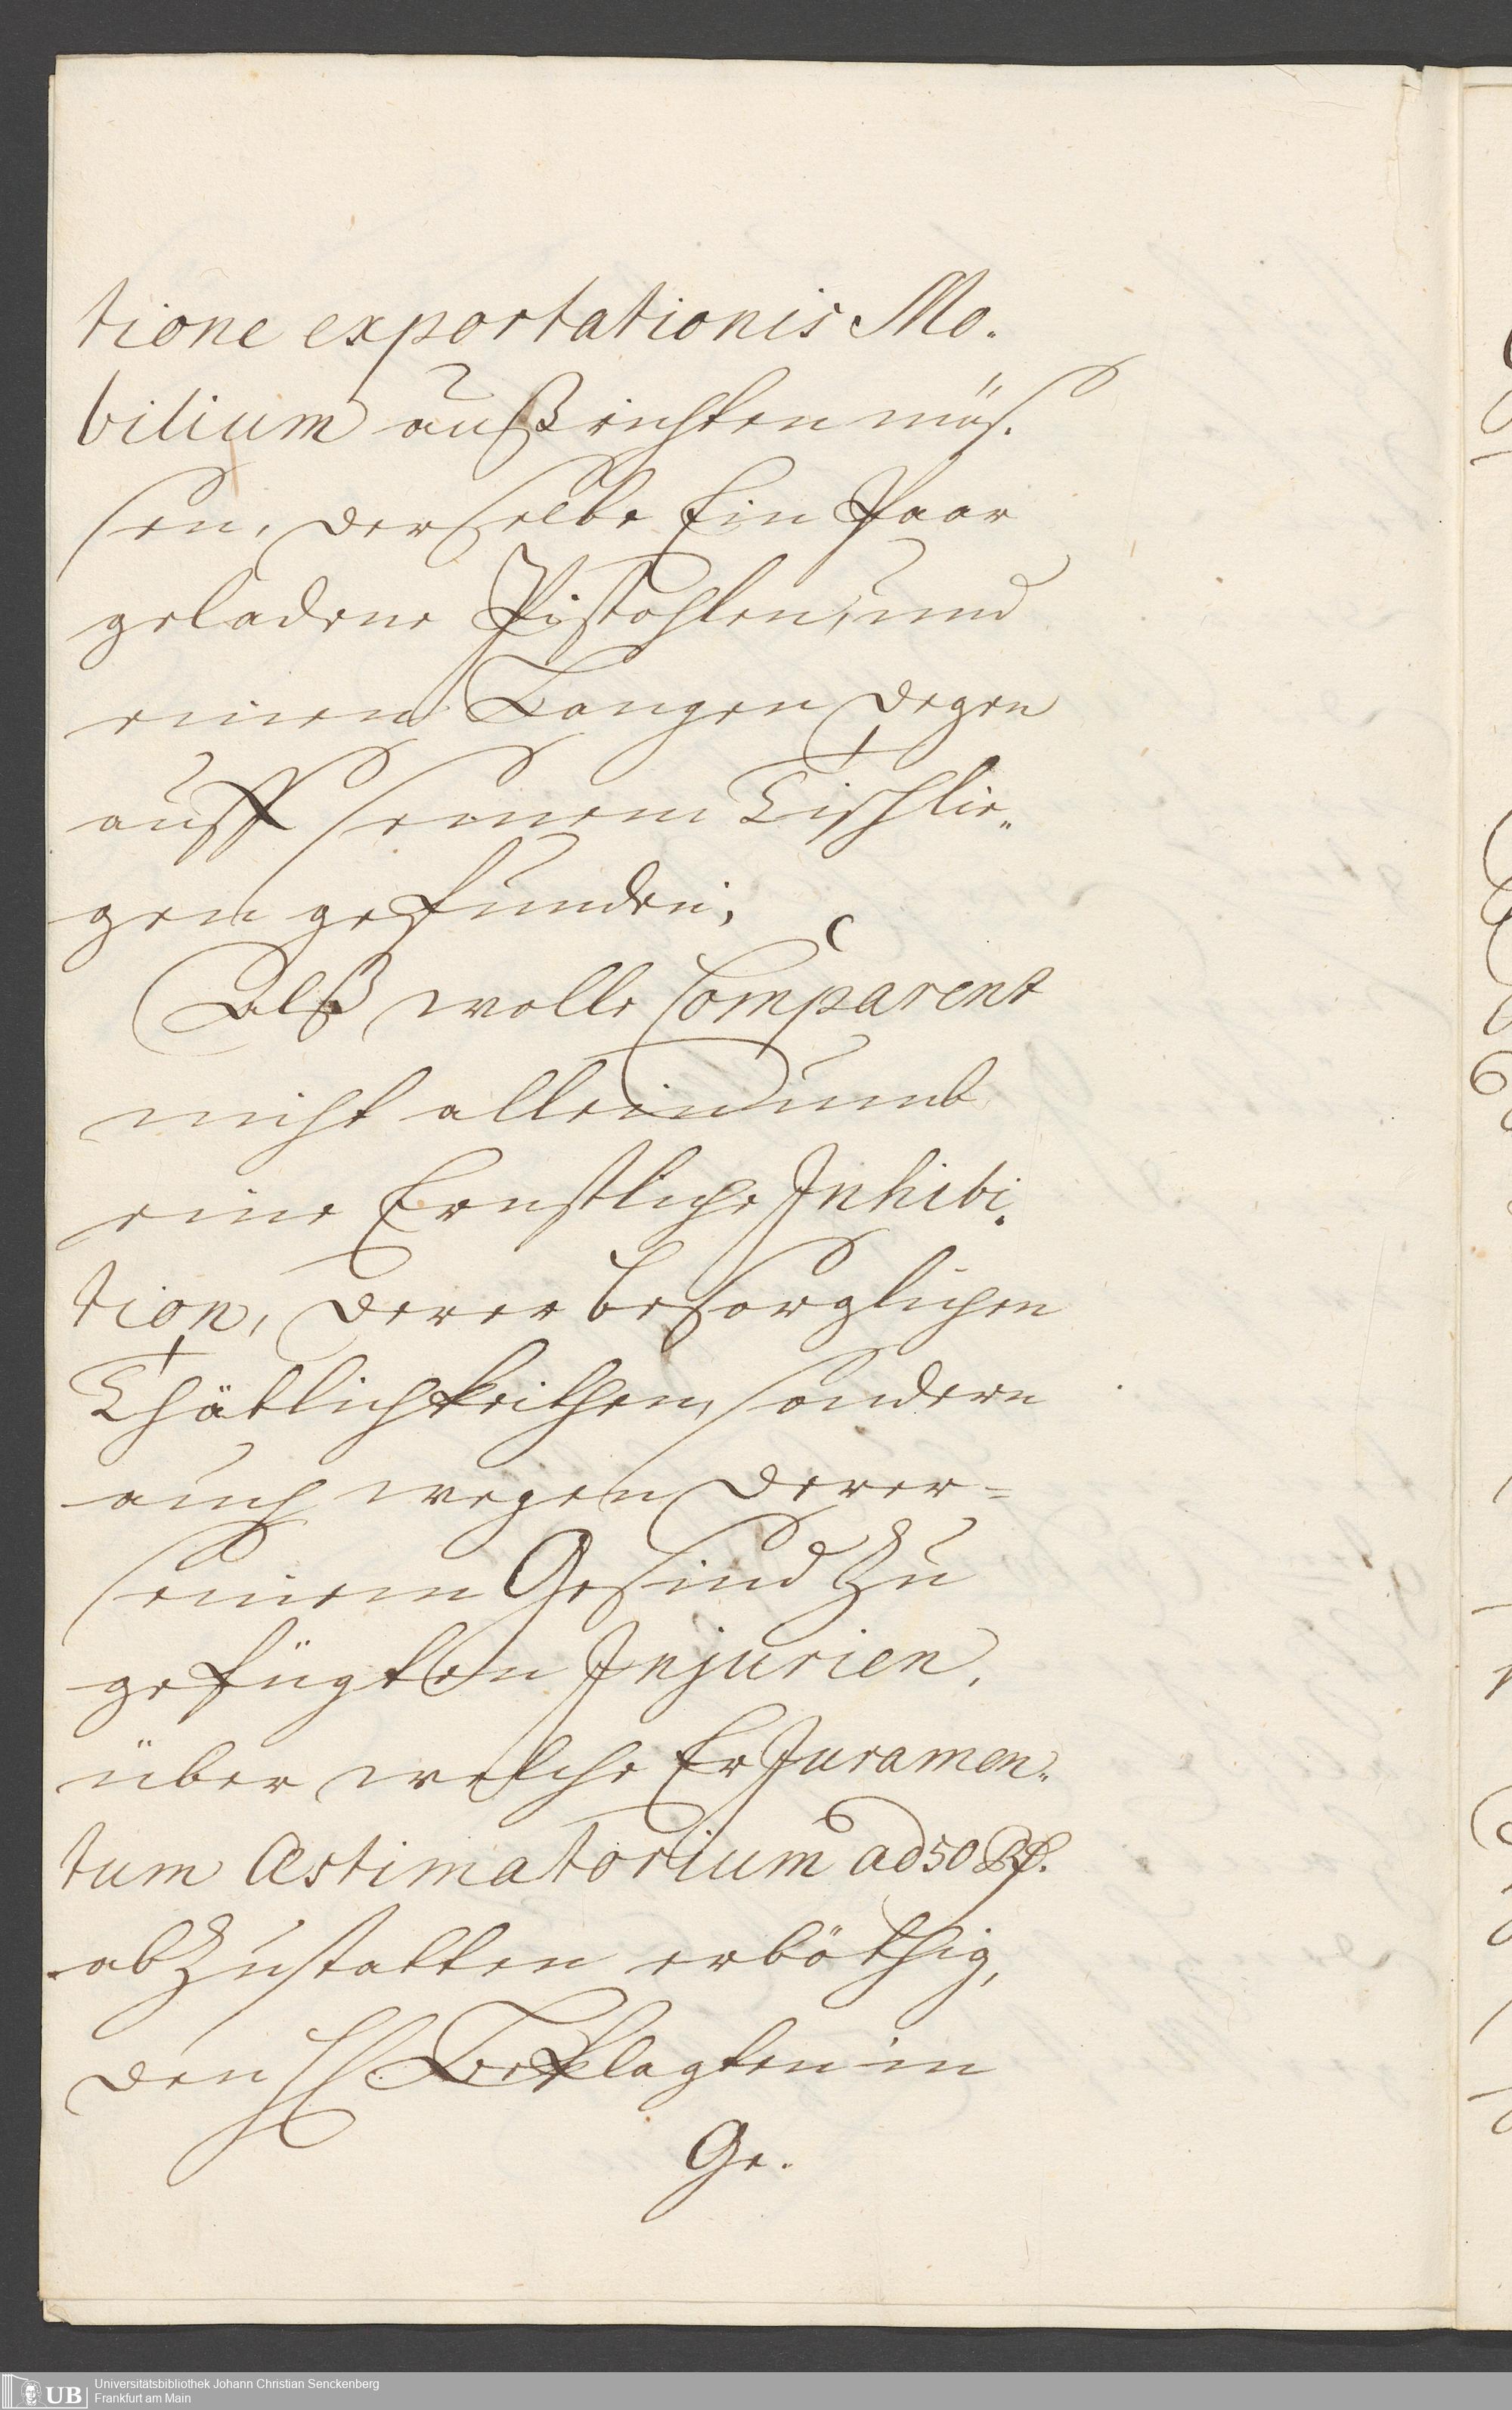 tione exportationis Mo-
bilium außrichten müs-
sen, derselbe Ein Paar
geladene Pistohlen, und
einen Langen degen
auff seinem Tisch lie-
gen gefunden;
Alß wolle Comparent
nicht allein umb
eine Ernstliche Inhibi-
tion, derer besorglichen
Thätlichkeithen, sondern
auch wegen derer=
seinem Gesind Zu
gefügten Injurien,
über welche Er Juramen-
tum Æstimatorium ad 50 Rth.
abZustatten erböthig,
den H. Beklagten in
Ge-
UB
Universitätsbibliothek Johann Christian Senckenberg
Frankfurt am Main